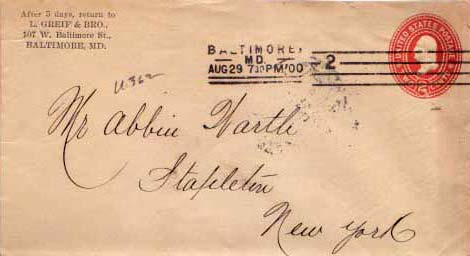 After 5 days, return to
L. GREIF & BRO.,
107 W. Baltimore St.,
BALTIMORE, MD.
BALTIMORE,
MD.
AUG 29 7 PM '00
2
UNITED STATES POSTAGE
U362
Mr Abbin
Stapleton
New York